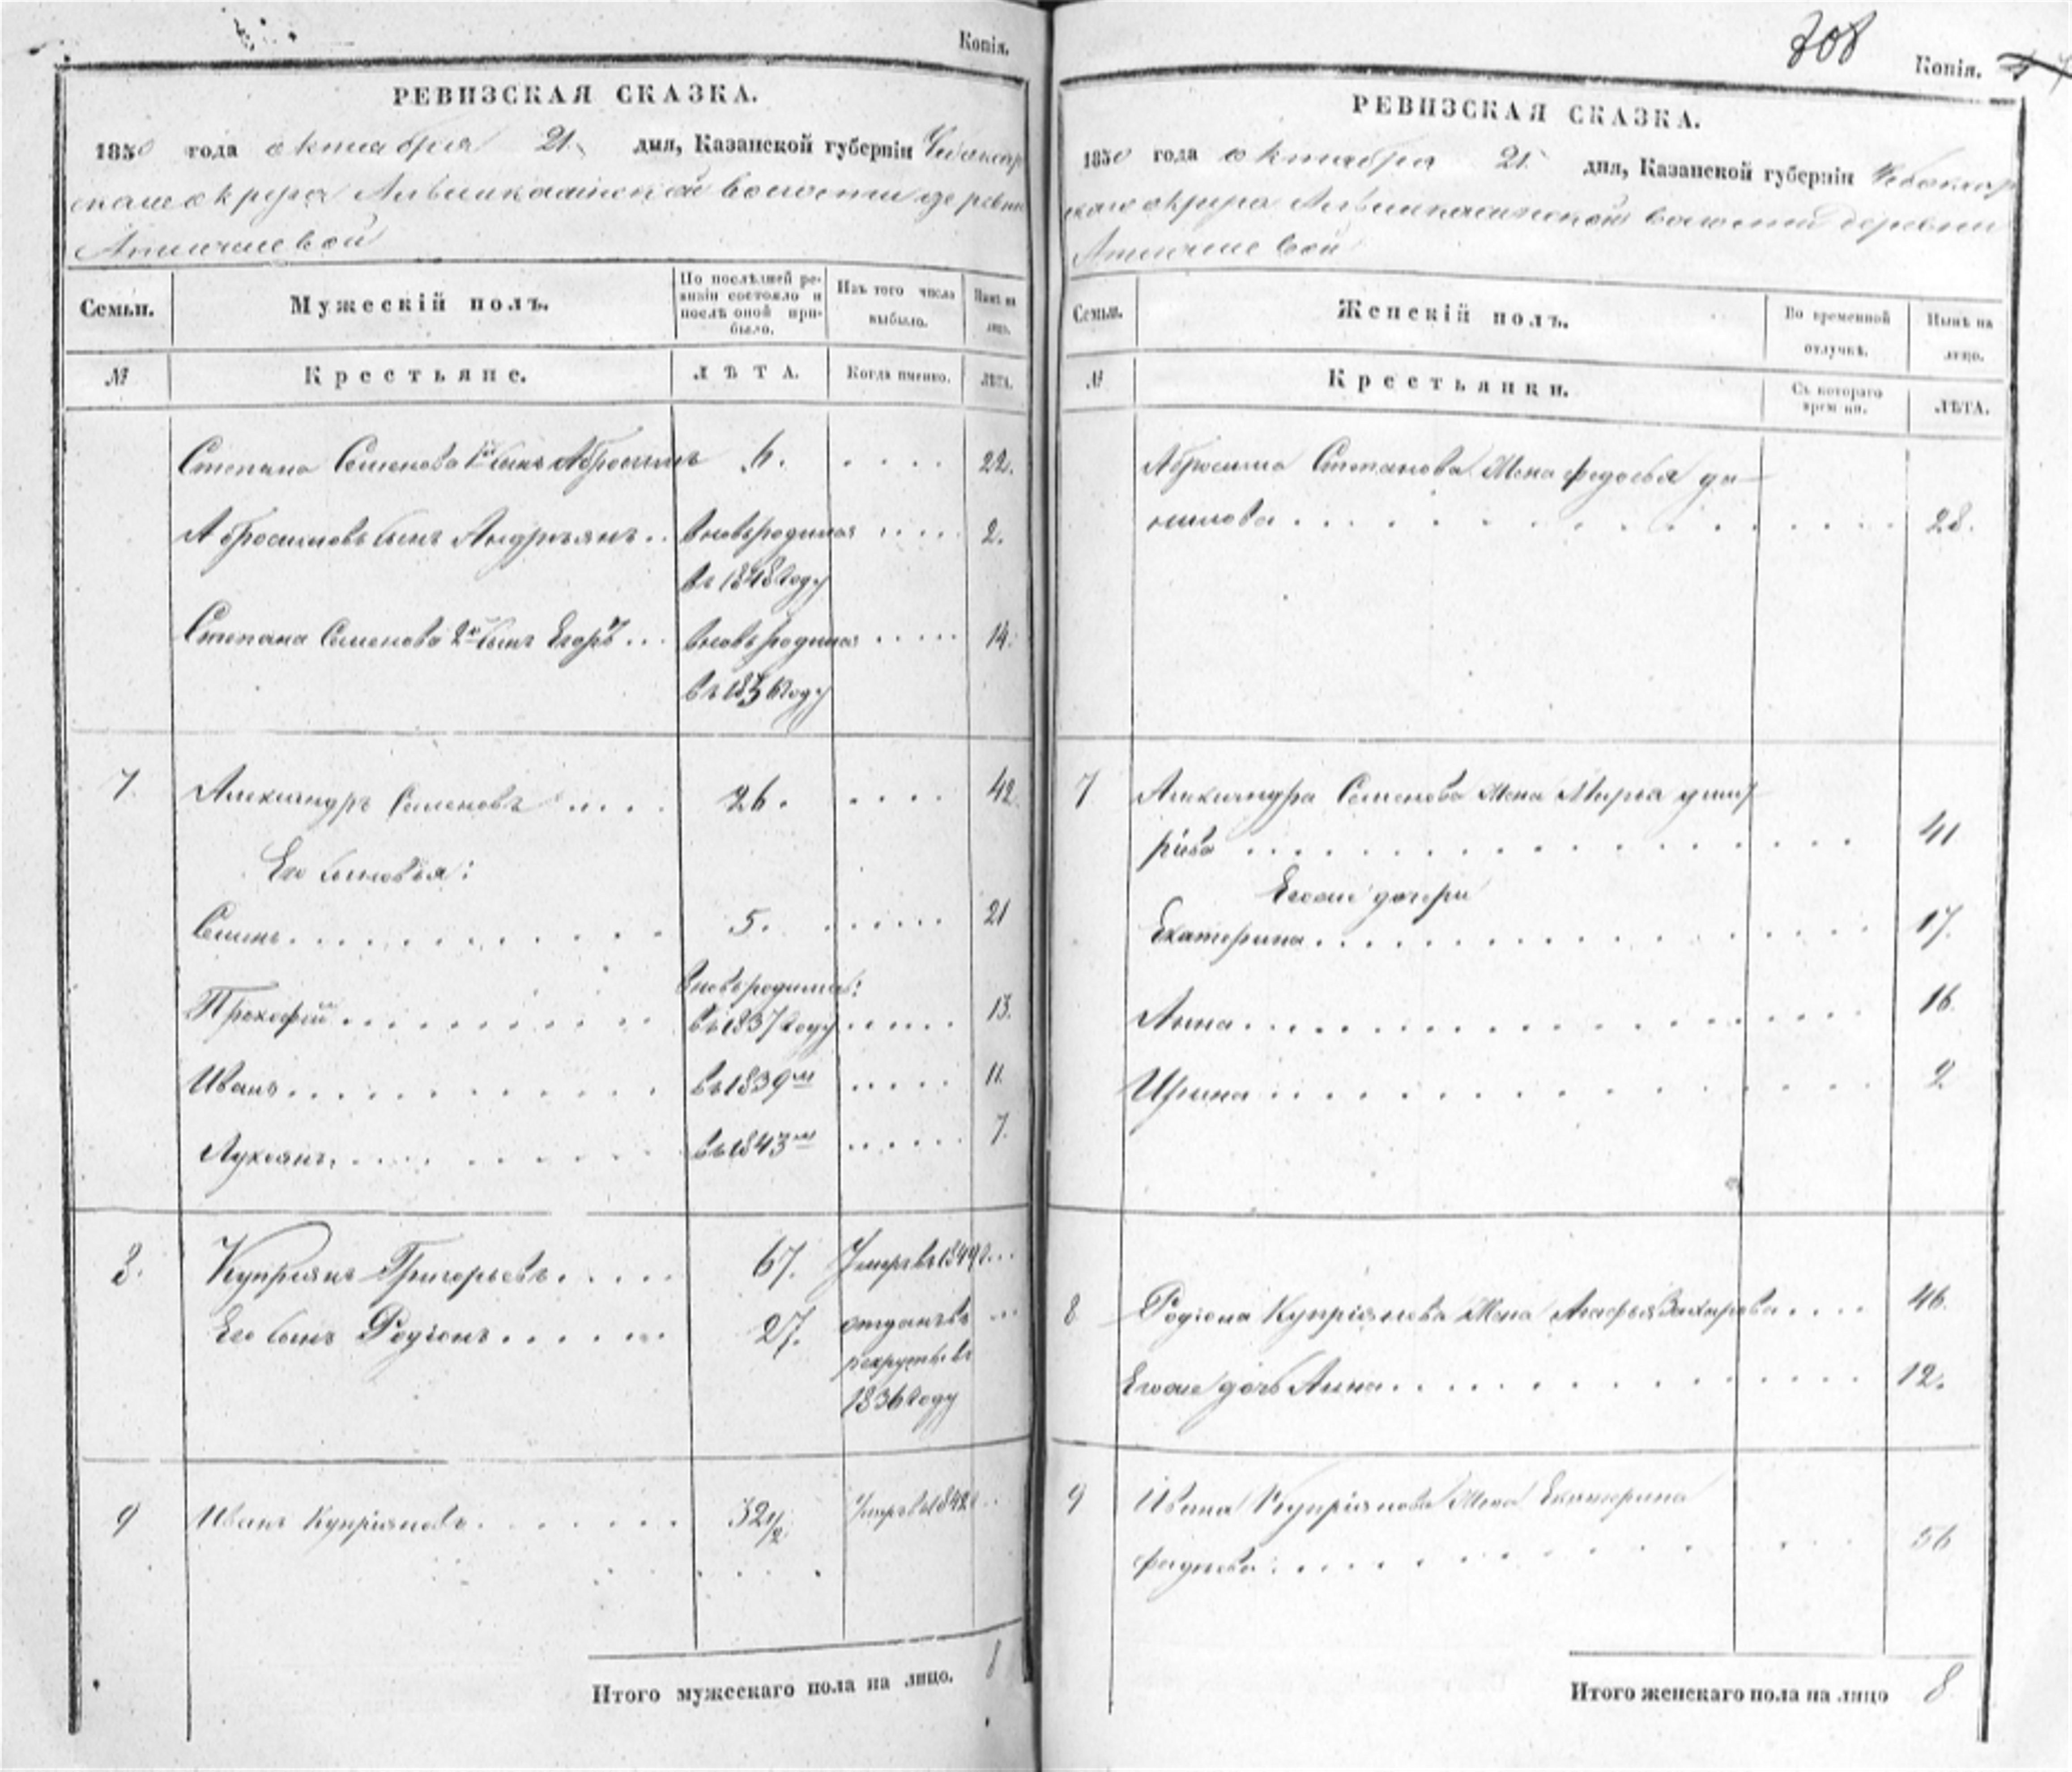 Копія.
РЕВИЗСКАЯ СКАЗКА.
1850 года октября 21 дня, Казанской губерніи Чебоксар
скаго округа волости деревни
Семьи.
Мужескій полъ.
По послѣдней ре-
визіи состояло и
послѣ оной при-
было.
Изъ того числа
выбыло.
Нынѣ на
лицо.
№
Крестьяне.
ЛѢТА.
Когда именно.
ЛѢТА.
Степана Семенова 1й сынъ Абросимъ 6. 22.
Абросимовъ сынъ Андреянъ вновьродился 2.
въ 1848 году
Степана Семенова 2й сынъ Егоръ вновьродился 14.
въ 1836 году
7. Александръ Семеновъ 26. 42.
Его сыновья:
Семенъ 5. 21
вновьродились:
Прокофей въ 1837 году 13.
Иванъ въ 1839м 11.
Лукоянъ въ 1843м 7.
8. Купріянъ Григорьевъ 67. Умеръ въ 1849 г.
Его сынъ Родіонъ 27. отданъ въ
рекруты въ
1836 году
9 Иванъ Купріяновъ 32 1/2. Умеръ въ
Итого мужескаго пола на лицо. 8
708
Копія.
РЕВИЗСКАЯ СКАЗКА.
1850 года октября 21 дня, Казанской губерніи Чебоксар
скаго округа волости деревни
Семьи.
Женскій полъ.
Во временной
отлучкѣ.
Нынѣ на
лицо.
№
Крестьянки.
Съ котораго
времени.
ЛѢТА.
Абросима Степанова жена Федосья Да-
нилова 28.
7 Александра Семенова жена Марья Дмит
ріева 41
Егоже дочери
Екатерина 17.
Анна 16.
Ирина 9.
8 Родіона Купріянова жена Агафья Захарова 46.
Егоже дочь Анна 12.
9 Ивана Купріянова жена Екатерина
56
Итого женскаго пола на лицо 8